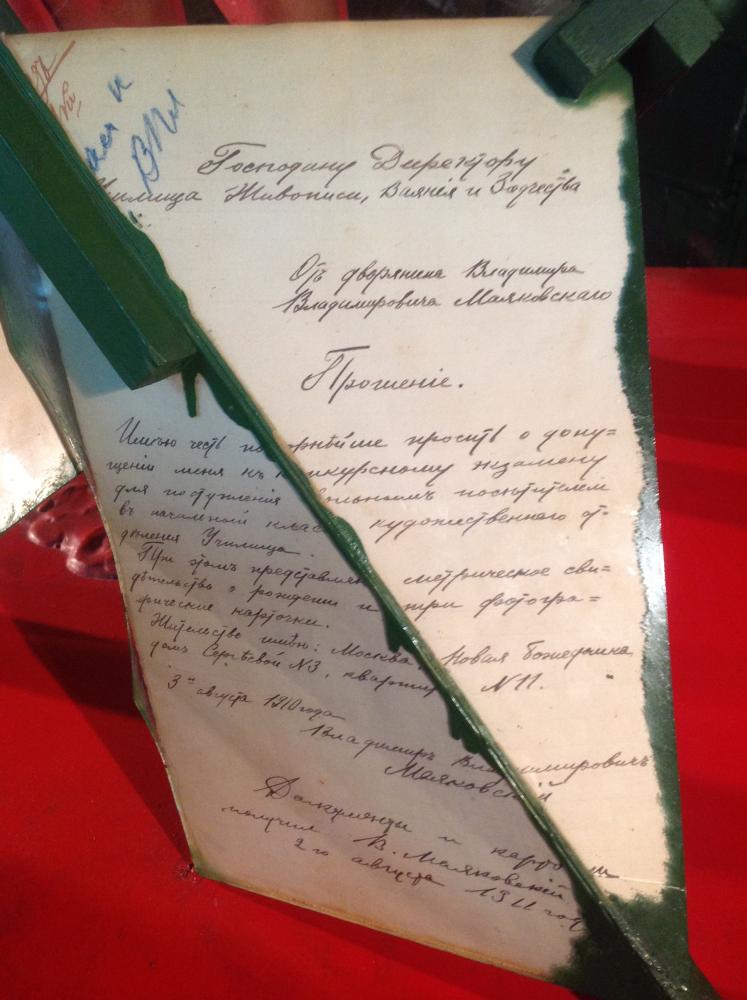 Господину Директору
Училища Живописи, Ваянiя и Зодчества
Отъ дворянина Владимира
Владимировича Маяковскаго
Прошенiе.
Имѣю честь покорнѣйше просить о допу=
щенiи меня къ конкурсному экзамену
для поступленiя вольнымъ посѣтителемъ
въ начальной класс художественнаго от=
дѣленiя Училища.
При этомъ представляю метрическое сви=
дѣтельство о рожденiи и три фотогра=
фическiе карточки.
Жительство имѣю: Москва, Новая божедомка
домъ Сергѣевой № 3, квартира № 11.
3го августа 1910 года
Владимиръ Владимировичъ
Маяковскiй
Документы и карточки
получил В. Маяковскiй
2го августа 1911 год